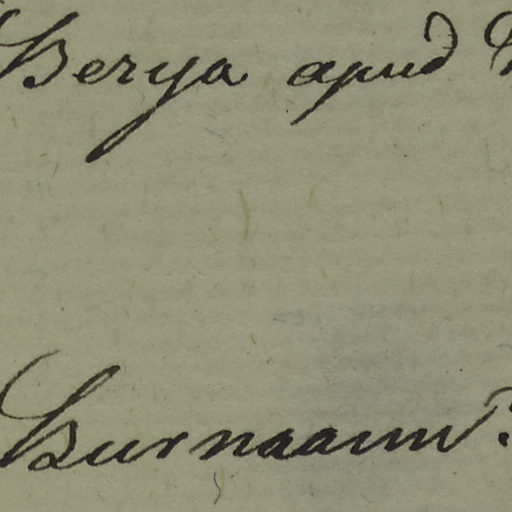 Berya apud
Burnaann: